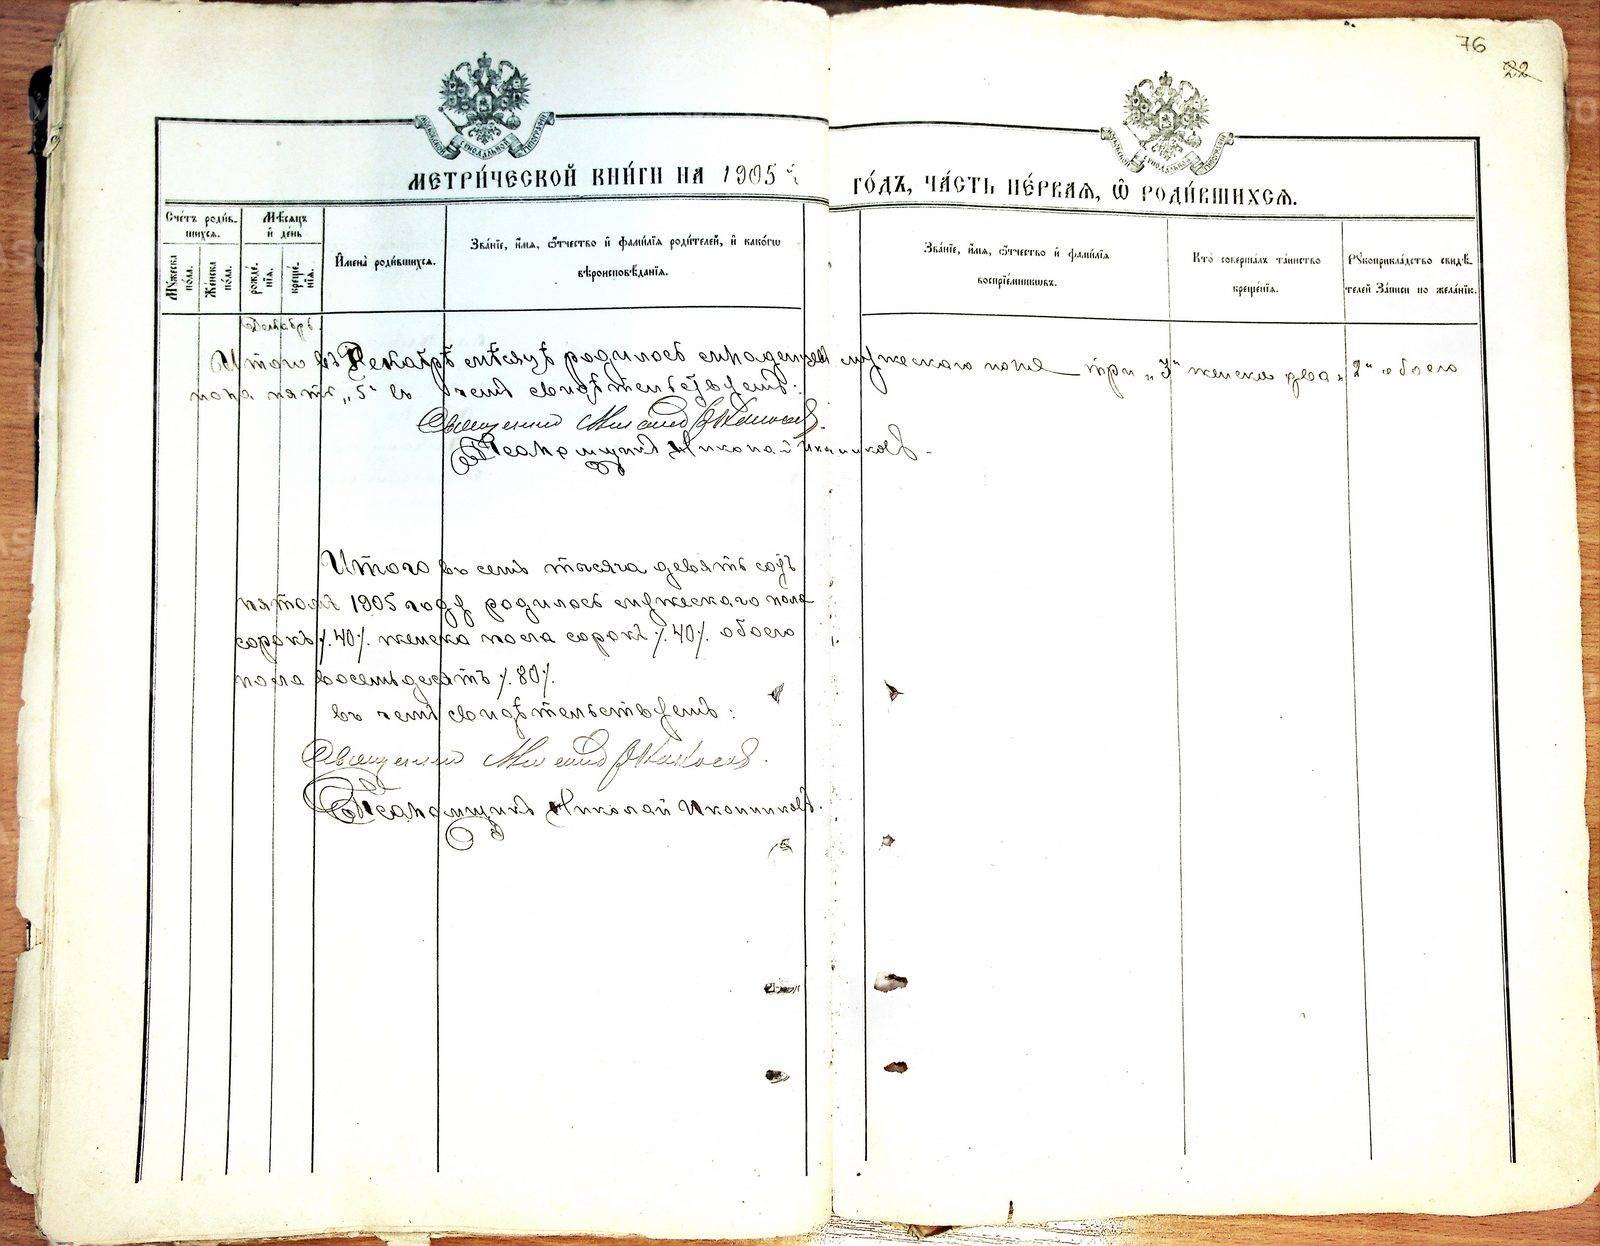 76
22
МОСКОВСКОЙ СУНОДАЛЬНОЙ ТИПОГРАФІИ
МОСКОВСКОЙ СУНОДАЛЬНОЙ ТИПОГРАФІИ
МЕТРИ́ЧЕСКОЙ КНИ́ГИ НА 1905 й ГО́ДЪ, ЧА́СТЬ ПЕ́РВАѦ, Ѡ҆ РОДИ́ВШИХСѦ.
Сче́тъ роди́в-
шихсѧ.
Му́жеска по́ла.
Же́нска по́ла.
Мѣ́сѧцъ
и҆ де́нь
рожде́-
нїѧ.
креще́-
нїѧ.
И҆мена̀ роди́вшихсѧ.
Зва́нїе, и҆́мѧ, ѻ҆́тчество и҆ фами́лїѧ роди́телей, и҆ како́гѡ
вѣроисповѣ́данїѧ.
Зва́нїе, и҆́мѧ, ѻ҆́тчество и҆ фами́лїѧ
воспрїе́мникѡвъ.
Кто̀ соверша́лъ та́инство
креще́нїѧ.
Рукоприкла́дство свидѣ́-
телей за́писи по жела́нїю.
Декабрь
Итого въ Декабрѣ мѣсяцѣ родилось младенцевъ мужескаго пола три „3“ женска два „2“ обоего
пола пять „5“ въ чемъ свидѣтельствуемъ:
Священникъ
Псаломщикъ Николай Иконниковъ.
Итого въ семъ тысяча девятьсотъ
пятомъ 1905 году родилось мужескаго пола
сорокъ /.40/. женска пола сорокъ /.40/. обоего
пола восемьдесятъ /.80/.
въ чемъ свидѣтельствуемъ:
Священникъ
Псаломщикъ Николай Иконниковъ.